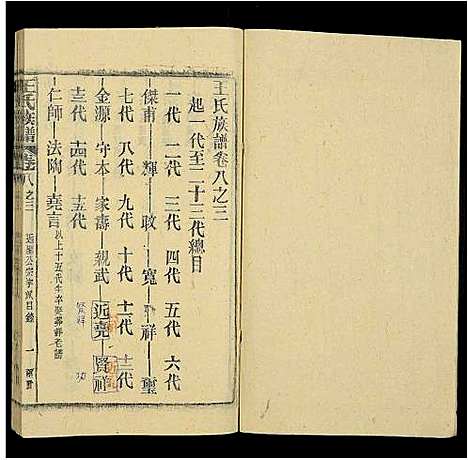 王氏族譜卷八之三
起一代至二十三代總目
一代 二代 三代 四代 五代 六代
傑甫 輝 政 寬 祥 璽
七代 八代 九代 十代 十一代 十二代
金源 守本 家濤 親武 近堯 賢祥
十三代 十四代 十五代
仁師 法陶 堯言 以上十五代生卒娶葬詳老譜
王氏族譜 卷八之三